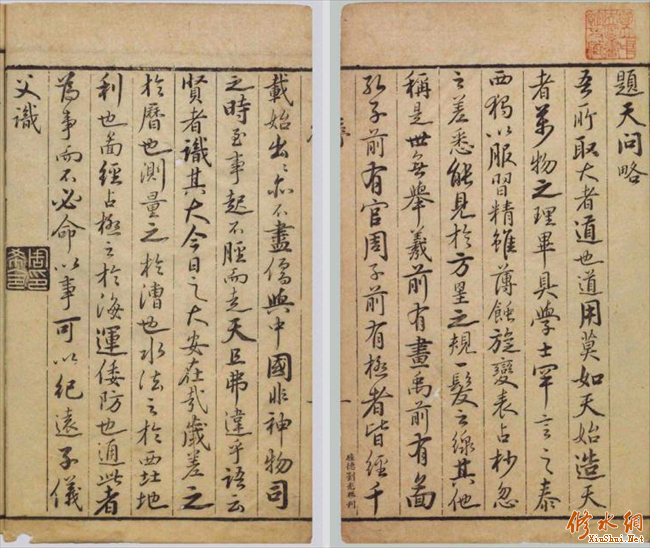 題天問略
吾所取大者道也道用莫如天始造天
者萬物之理畢具學士罕言之泰
西獨以服習精雖薄蝕旋變表占杪忽
之差悉能見於方罣之規一髮之線其他
稱是世無舉羲前有畫禹前有圖
孔子前有官周子前有極者皆經千
載始出〻亦不盡儒與中國非神物司
之時至事起不脛而走天且弗違乎語云
賢者識其大今日之大安在哉歲差之
於曆也測量之於漕也水法之於西北地
利也啚經占極之於海運倭防也通此者
為事而不必命以事可以紀遠子儀
父識
修水網
XiuShui.Net